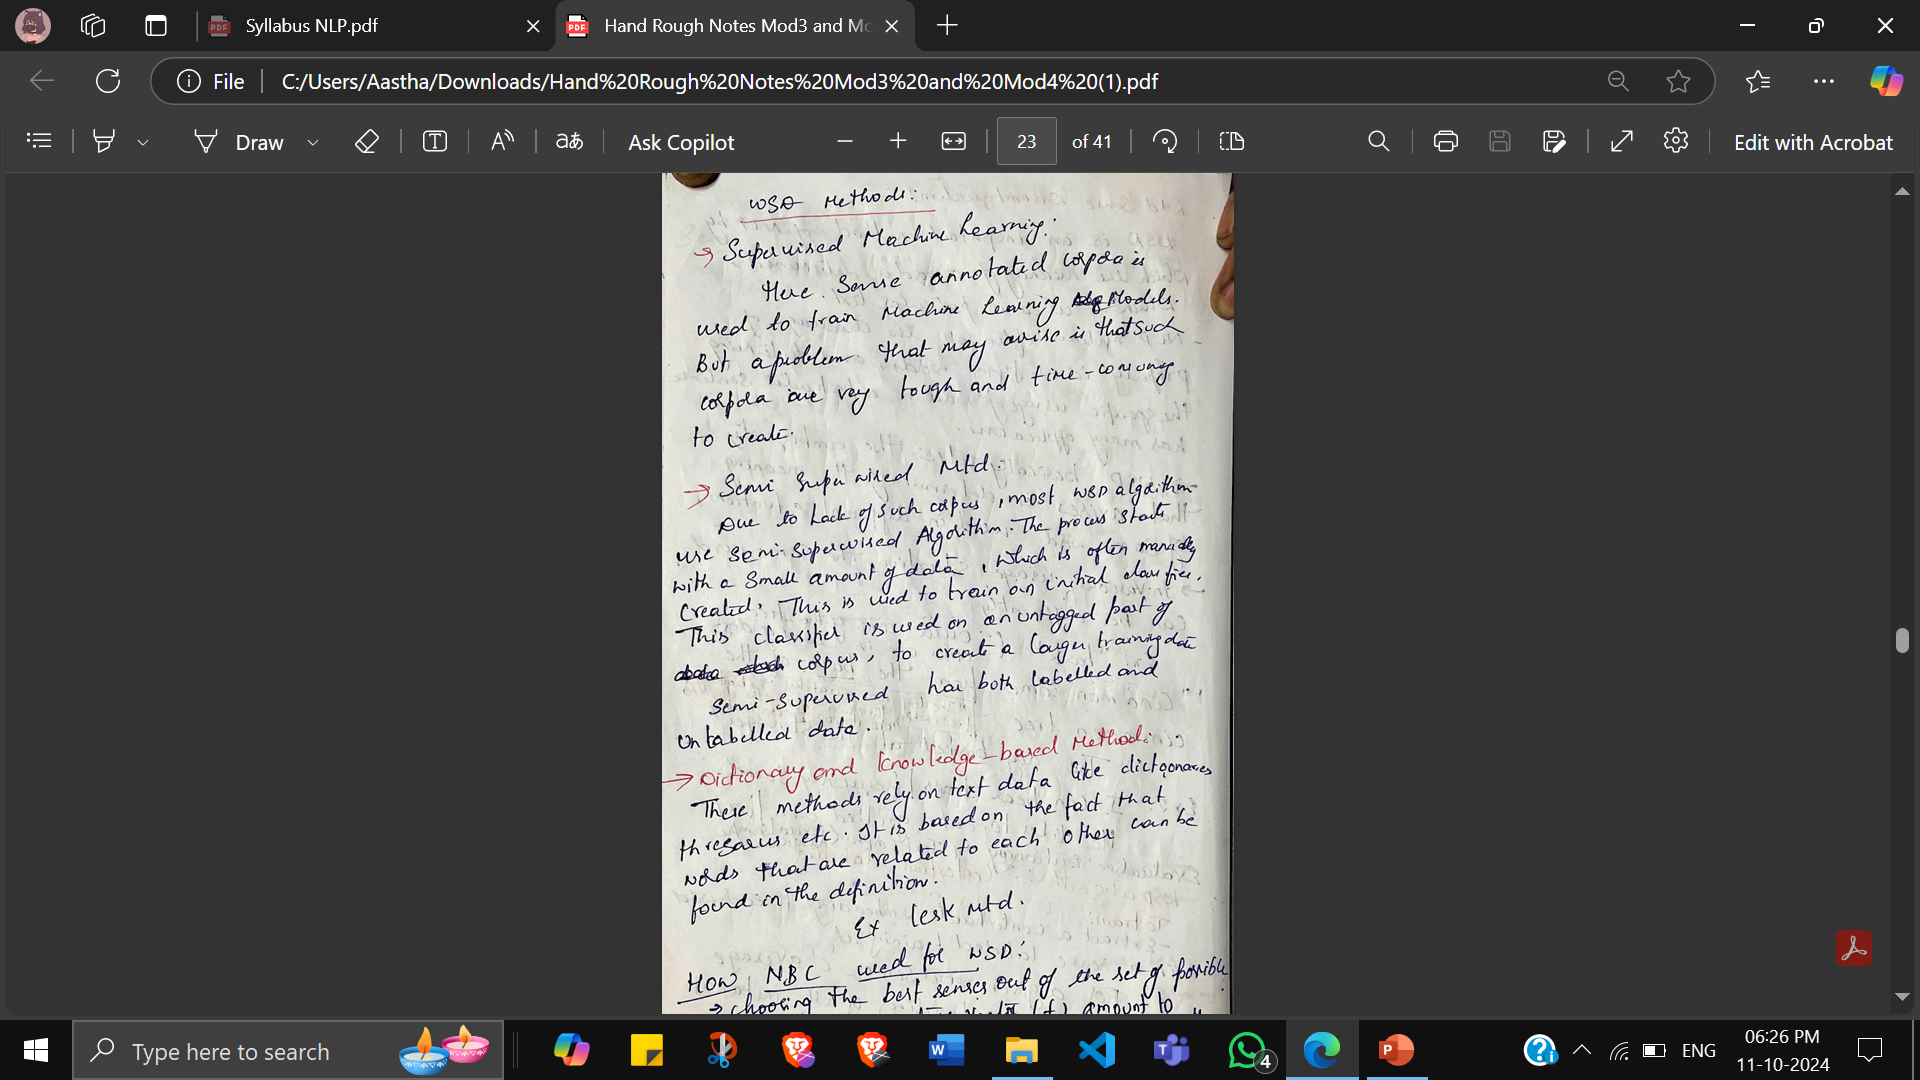 Syllabus NLP.pdf
Hand Rough Notes Mod3 and Mo
File
C:/Users/Aastha/Downloads/Hand%20Rough%20Notes%20Mod3%20and%20Mod4%20(1).pdf
Draw
Ask Copilot
23 of 41
Edit with Acrobat
WSD Methods:
→ Supervised Machine Learning:
Here Sense annotated corpora is
used to train Machine Learning Models.
But a problem that may arise is that such
corpora are very tough and time-consuming
to create.
→ Semi Supervised Mtd:
Due to Lack of such corpus, most WSD algorithm
use Semi-Supervised Algorithm. The process starts
with a small amount of data, which is often manually
Created. This is used to train an initial classifier.
This classifier is used on an untagged part of
corpus, to create a larger training data
Semi-Supervised has both labelled and
unlabelled data.
→ Dictionary and knowledge-based Method:
These methods rely on text data like dictionaries
thresarus etc. It is based on the fact that
words that are related to each other can be
found in the definition.
Ex lesk Mtd.
How NBC used for WSD:
→ choosing the best senses out of the set of possible
amount to
Type here to search
4
ENG
06:26 PM
11-10-2024